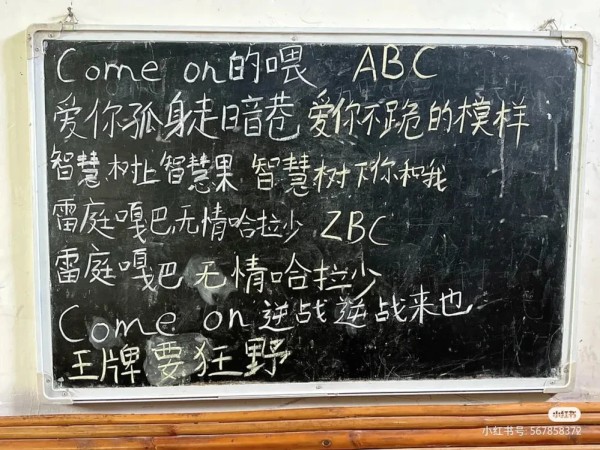 Come on的喂 ABC
爱你孤身走暗巷 爱你不跪的模样
智慧树上智慧果 智慧树下你和我
雷庭嘎巴无情哈拉少 ZBC
雷庭嘎巴 无情哈拉少
Come on 逆战逆战来也
王牌要狂野
小红书
小红书号: 567858372